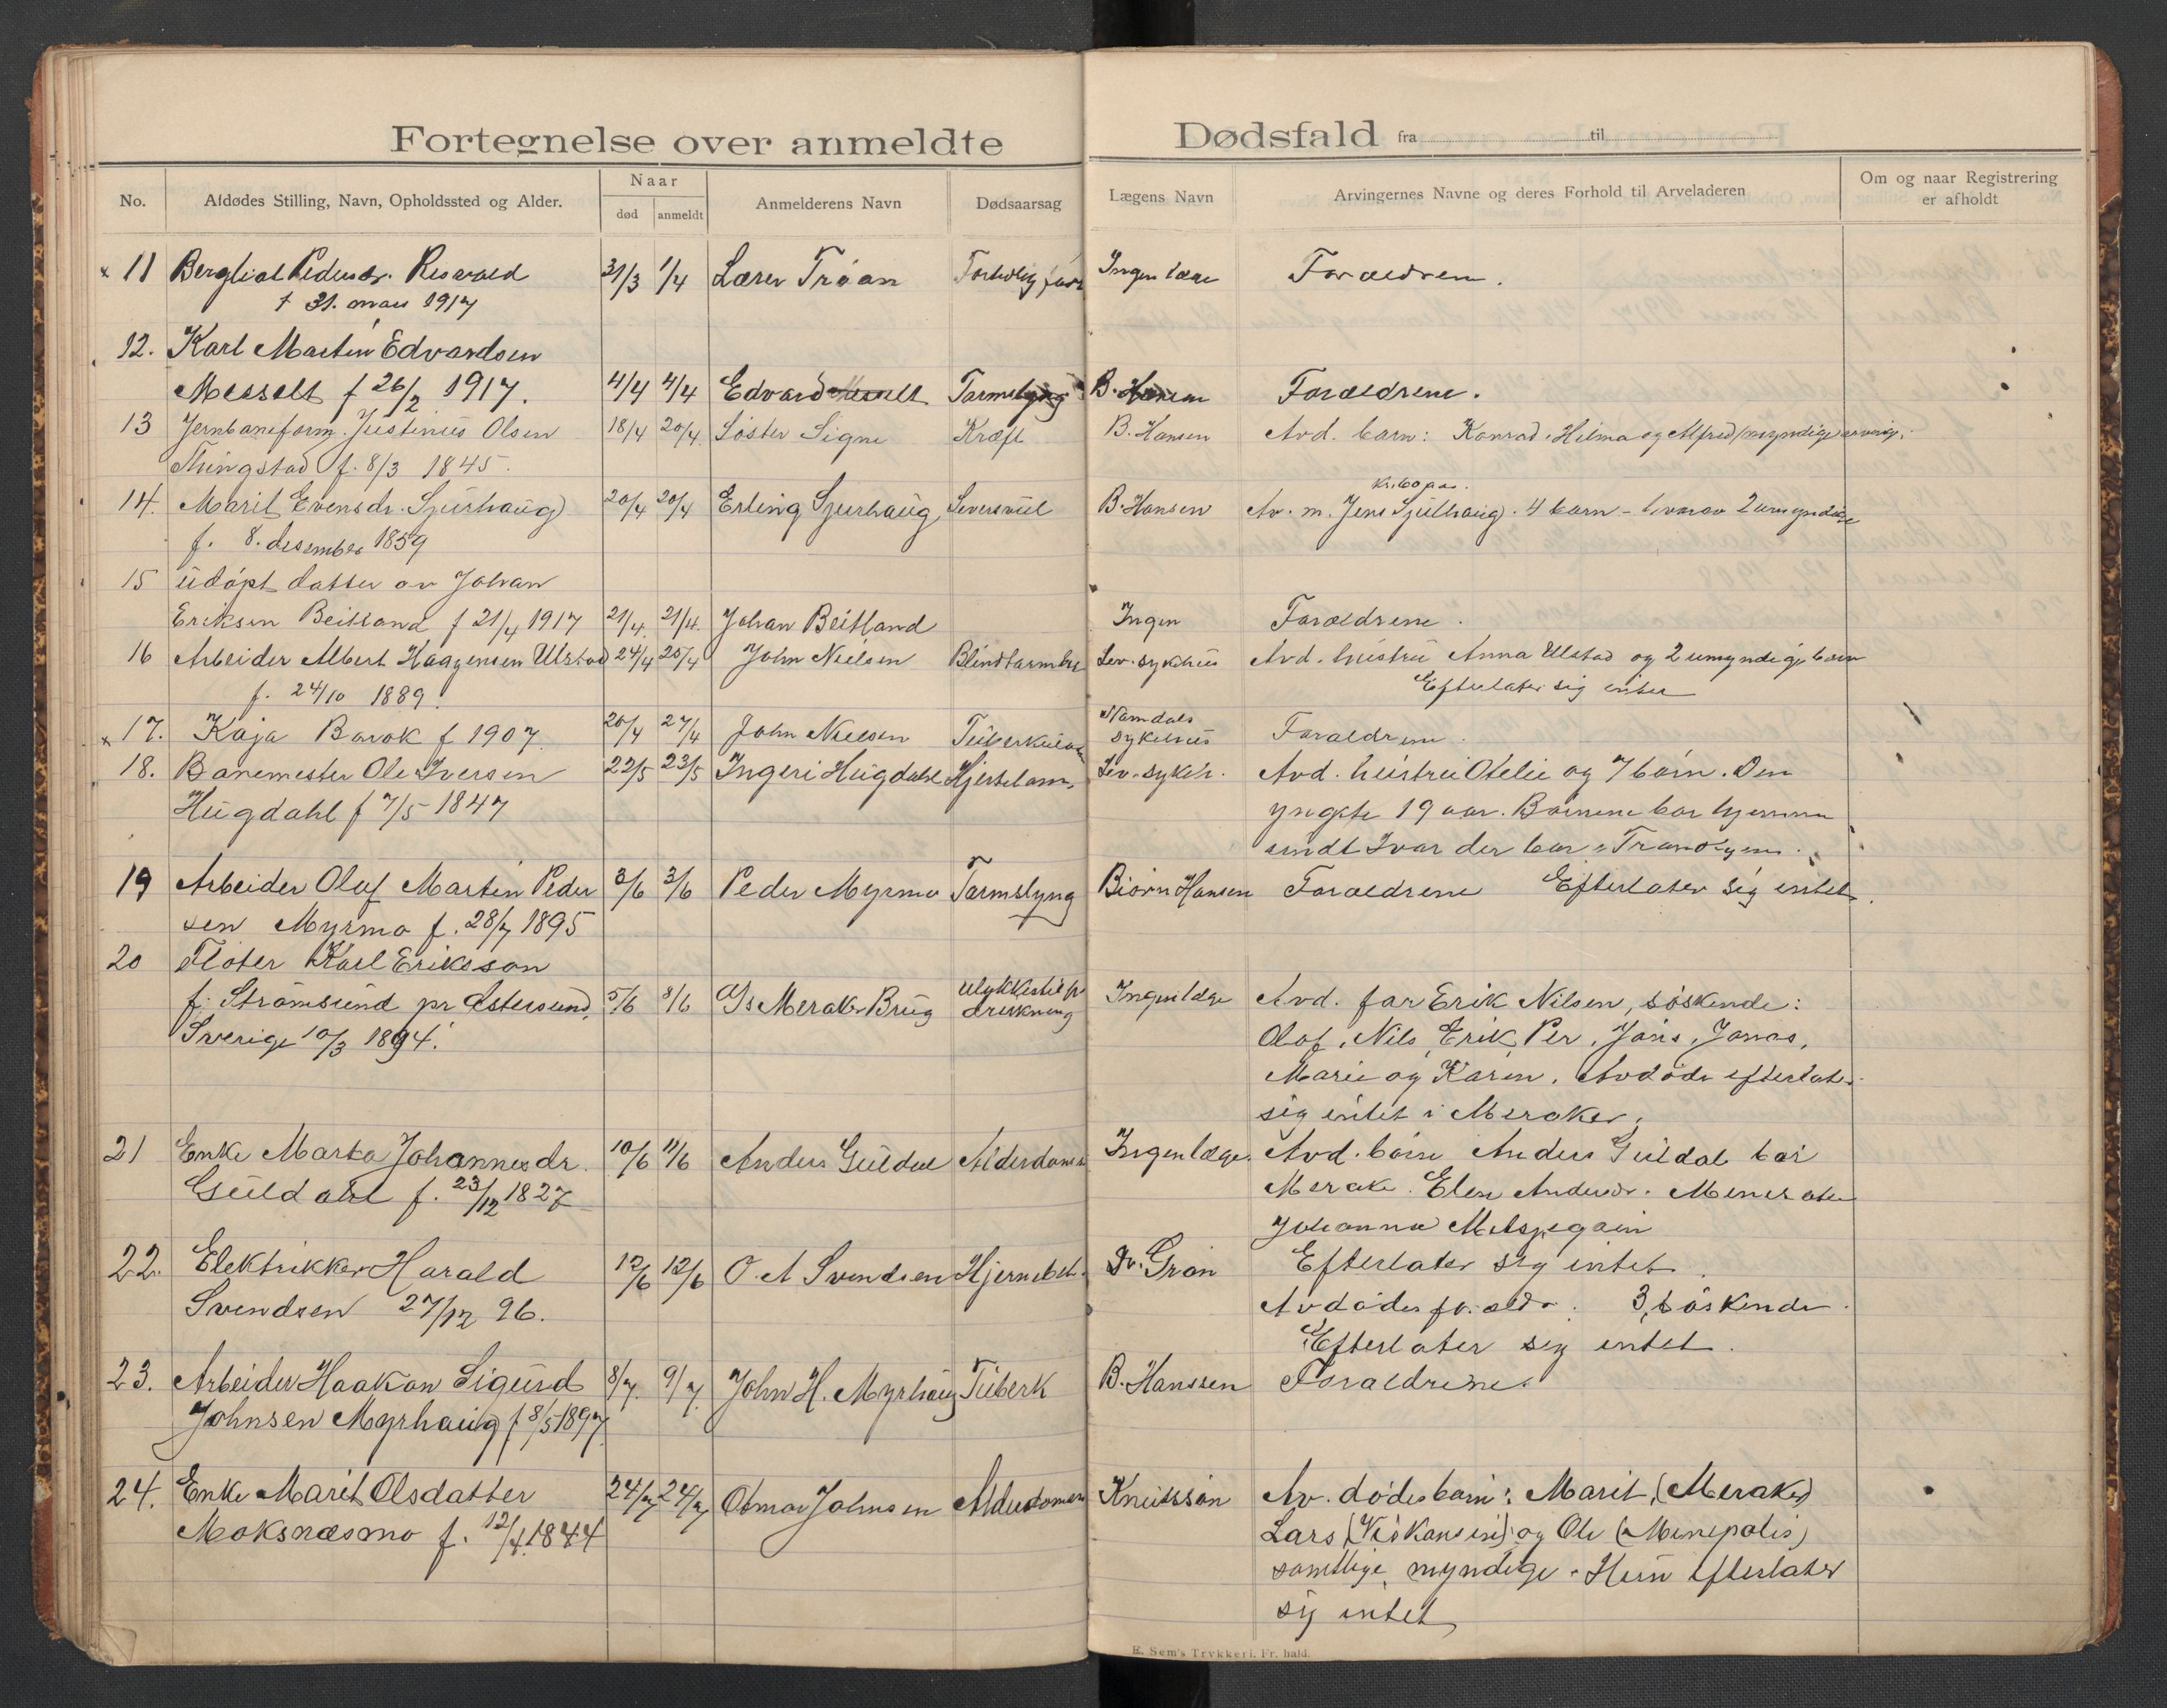 Fortegnelse over anmeldte Dødsfald fra til
No. Afdødes Stilling, Navn, Opholdssted og Alder. Naar Anmelderens Navn Dødsaarsag Lægens Navn Arvingernes Navne og deres Forhold til Arveladeren Om og naar Registrering
død anmeldt er afholdt
11 Bergliot Pedersdr. 31/3 1/4 Lærer Trøan Ingen læge Forældrene.
31. mars 1917
12. Karl Martin Edvardsen
Messelt f 26/2 1917. 4/4 4/4 Edvard Messelt Tarmslyng B. Hansen Forældrene.
13 Jernbaneform. Justinus Olsen 18/4 20/4 Søster Signe Kræft B. Hansen Avd. barn: Konrad, Hilma og Alfred myndige
Thingstad f. 8/3 1845.
kr. 60
14. Marit Evensdr. Sjurhaug 20/4 20/4 Erling Sjurhaug B. Hansen Av. m. Jens 4 barn - hvorav 2 umyndige
f. 8. desember 1859
15 udøpt datter av Johan
Eriksen Beitland f 21/4 1917 21/4 21/4 Johan Beitland Ingen Forældrene.
16 Arbeider Albert Haagensen Ulstad 24/4 25/4 John Nielsen Lev. sykehus Avd. hustru Anna Ulstad og 2 umyndige barn
f. 24/10 1889. Efterlater sig intet
17. Kaja f 1907 20/4 27/4 John Nielsen Tuberkulose Namdals
sykehus Forældrene.
18. Banemester Ole Iversen 22/5 23/5 Ingeri Hugdahl Lev. sykeh. Avd. hustru Otelie og 7 børn. Den
Hugdahl f 7/5 1847 yngste 19 aar. Børnene bor hjemme
undt Ivar der bor
19 Arbeider Olaf Martin Peder 3/6 3/6 Peder Myrmo Tarmslyng Biørn Hansen Forældrene Efterlater sig intet.
sen Myrmo f. 28/7 1895
20 Fløter Karl Eriksson
f. Strømsund pr Østersund, 5/6 8/6 A/S Meraker Brug Ulykkestilf
drukning Ingen læge Avd. far Erik Nilsen, søskende:
Sverige 10/3 1894. Olof, Nils, Erik, Per, Jøns, Jonas,
Marie og Karin. Avdøde efterlater
sig intet i Meraker.
21 Enke Marta Johannesdr. 10/6 11/6 Anders Guldal Alderdoms Ingen læge. Avd. børn Anders Guldal bor
Guldahl f. 23/12 1827 Meraker. Elen Andersdr.
Johanna
22. Elektrikker Harald 12/6 12/6 O. A Svendsen Hjernebet. Dr. Grøn Efterlater sig intet.
Svendsen 27/12 96. Avdødes forældr. 3 søskende.
Efterlater sig intet.
23. Arbeider Haakon Sigurd 8/7. 9/7. John H. Myrhaug Tuberk B. Hanssen Forældrene.
Johnsen Myrhaug f 8/5 1897
24. Enke Marit Olsdatter 24/7 24/7 Johnsen Alderdoms Knutsson Av. dødes børn: Marit, (Meraker)
Moksnæsmo f. 12/4 1844 Lars (Viskansin) og Ole (Minepolis)
samtlige myndige. Hun efterlater
sig intet
E. Sem's Trykkeri. Fr. hald.